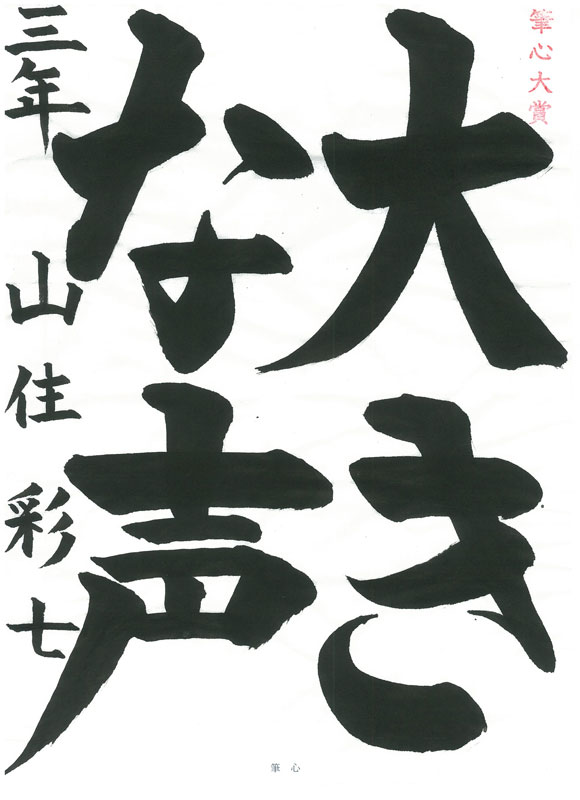 筆心大賞
大き
な声
三年 山住 彩七
筆心